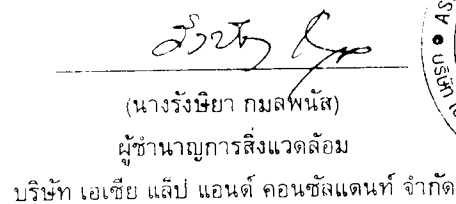 (นางรังษิยา กมลพนัส)
ผู้ชำนาญการสิ่งแวดล้อม
บริษัท เอเชีย แล็ป แอนด์ คอนซัลแตนท์ จำกัด
AS
บริษัท เ